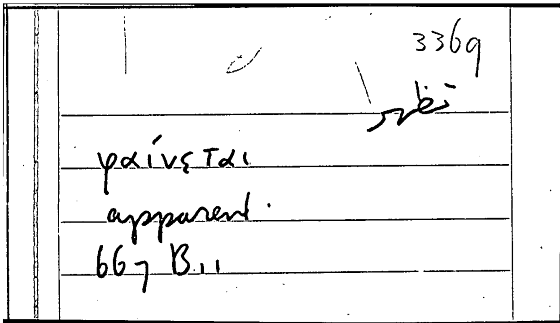 3369
φαίνεται
apparent.
667 B11